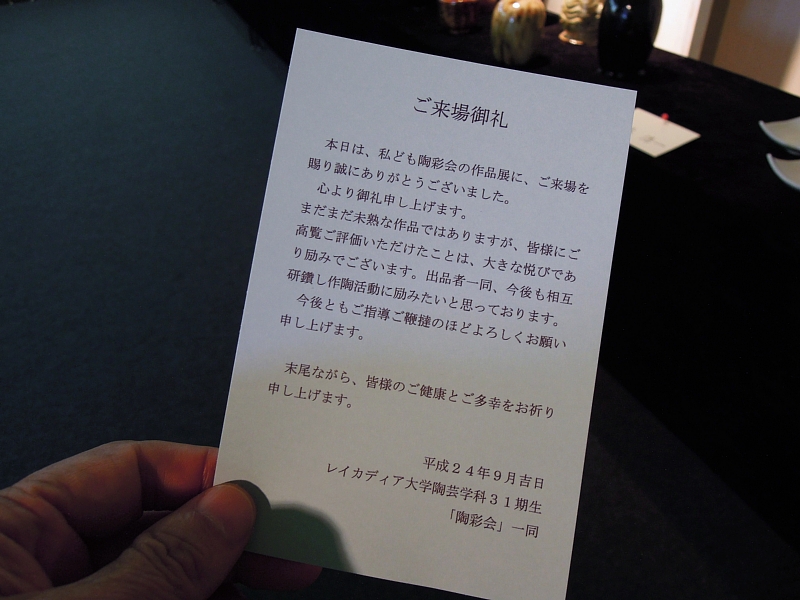 ご来場御礼
本日は、私ども陶彩会の作品展に、ご来場を
賜り誠にありがとうございました。
心より御礼申し上げます。
まだまだ未熟な作品ではありますが、皆様にご
高覧ご評価いただけたことは、大きな悦びであ
り励みでございます。出品者一同、今後も相互
研鑽し作陶活動に励みたいと思っております。
今後ともご指導ご鞭撻のほどよろしくお願い
申し上げます。
末尾ながら、皆様のご健康とご多幸をお祈り
申し上げます。
平成２４年９月吉日
レイカディア大学陶芸学科３１期生
「陶彩会」一同